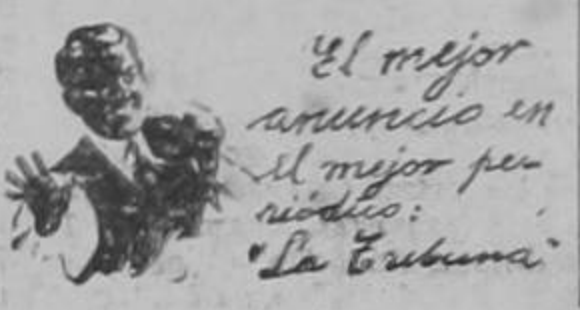 El mejor
anuncio en
el mejor pe-
riódico:
"La Tribuna"